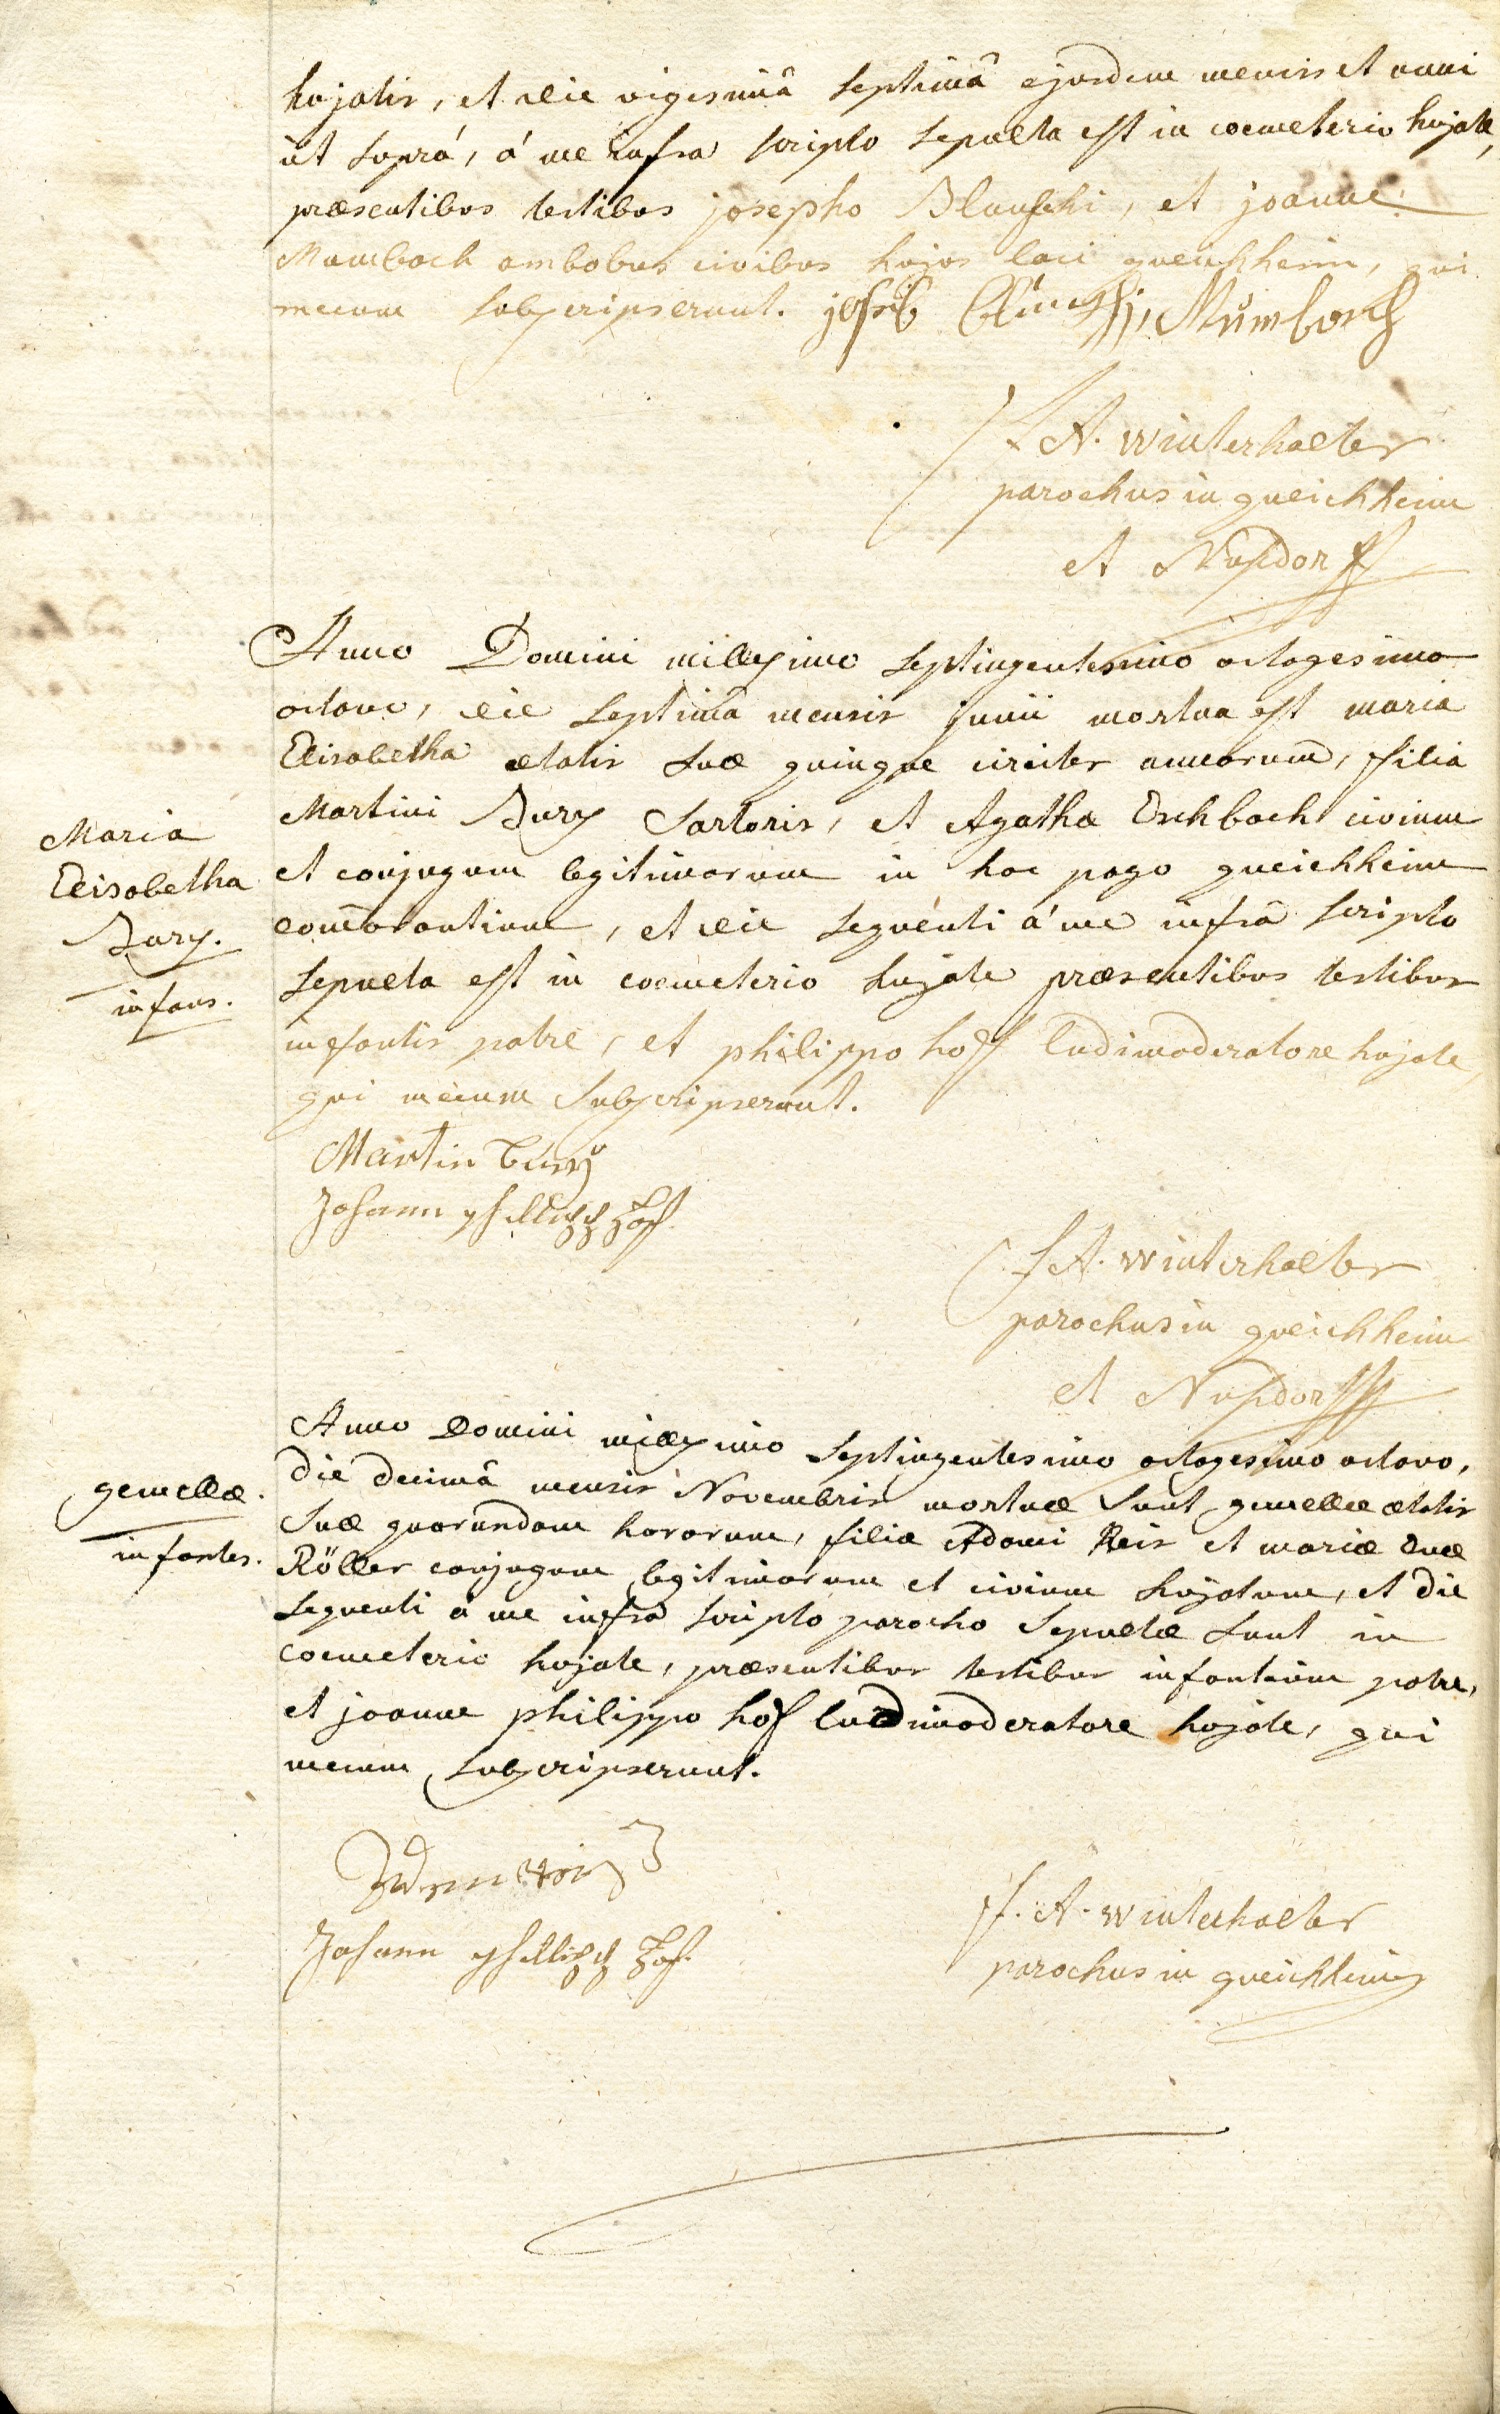 hujatis, et die vigesimâ septimâ ejusdem mensis et anni
ut suprá, á me infra scripto sepulta est in coemeterio hujate,
præsentibus testibus josepho Blanschi, et joanne
Mumbach ambobus civibus hujus loci queichheim, qui
mecum subscripserunt. joseb Mumbach
F A. Winterhalter
parochus in queichheim
et Nusdorff
Anno Domini millesimo septingentesimo octogesimo
octavo, die septimâ mensis junii mortua est maria
Elisabetha ætatis suæ quinque circiter annorum, filia
Martini Bury Sartoris, et Agathæ Eschbach civium
et conjugum legitimorum in hoc pago queichheim
com̄orantium, et die sequénti á me infrâ scripto
sepulta est in coemeterio hujate præsentibus testibus
infantis patre, et philippo hoff ludimoderatore hujate,
qui mecum subscripserunt.
Maria
Elisabetha
Bury.
infans.
Martin Bury
Johann phillipp Hof.
F A. Winterhalter
parochus in queichheim
et Nusdorff
Anno Domini millesimo septingentesimo octogesimo octavo,
die decimâ mensis Novembris mortuæ sunt gemellæ ætatis
suæ quorundam hororum, filiæ Adami Reis et mariæ Evæ
Röller conjugum legitimorum et civium hujatum, et die
sequenti a me infra scripto parocho sepultæ sunt in
coemeterio hujate, præsentibus testibus infantium patre,
et joanne philippo hof ludimoderatore hujate, qui
mecum subscripserunt.
gemellæ.
infantes.
Johann phillipp Hof.
f. A. Winterhalter
parochus in queichheim